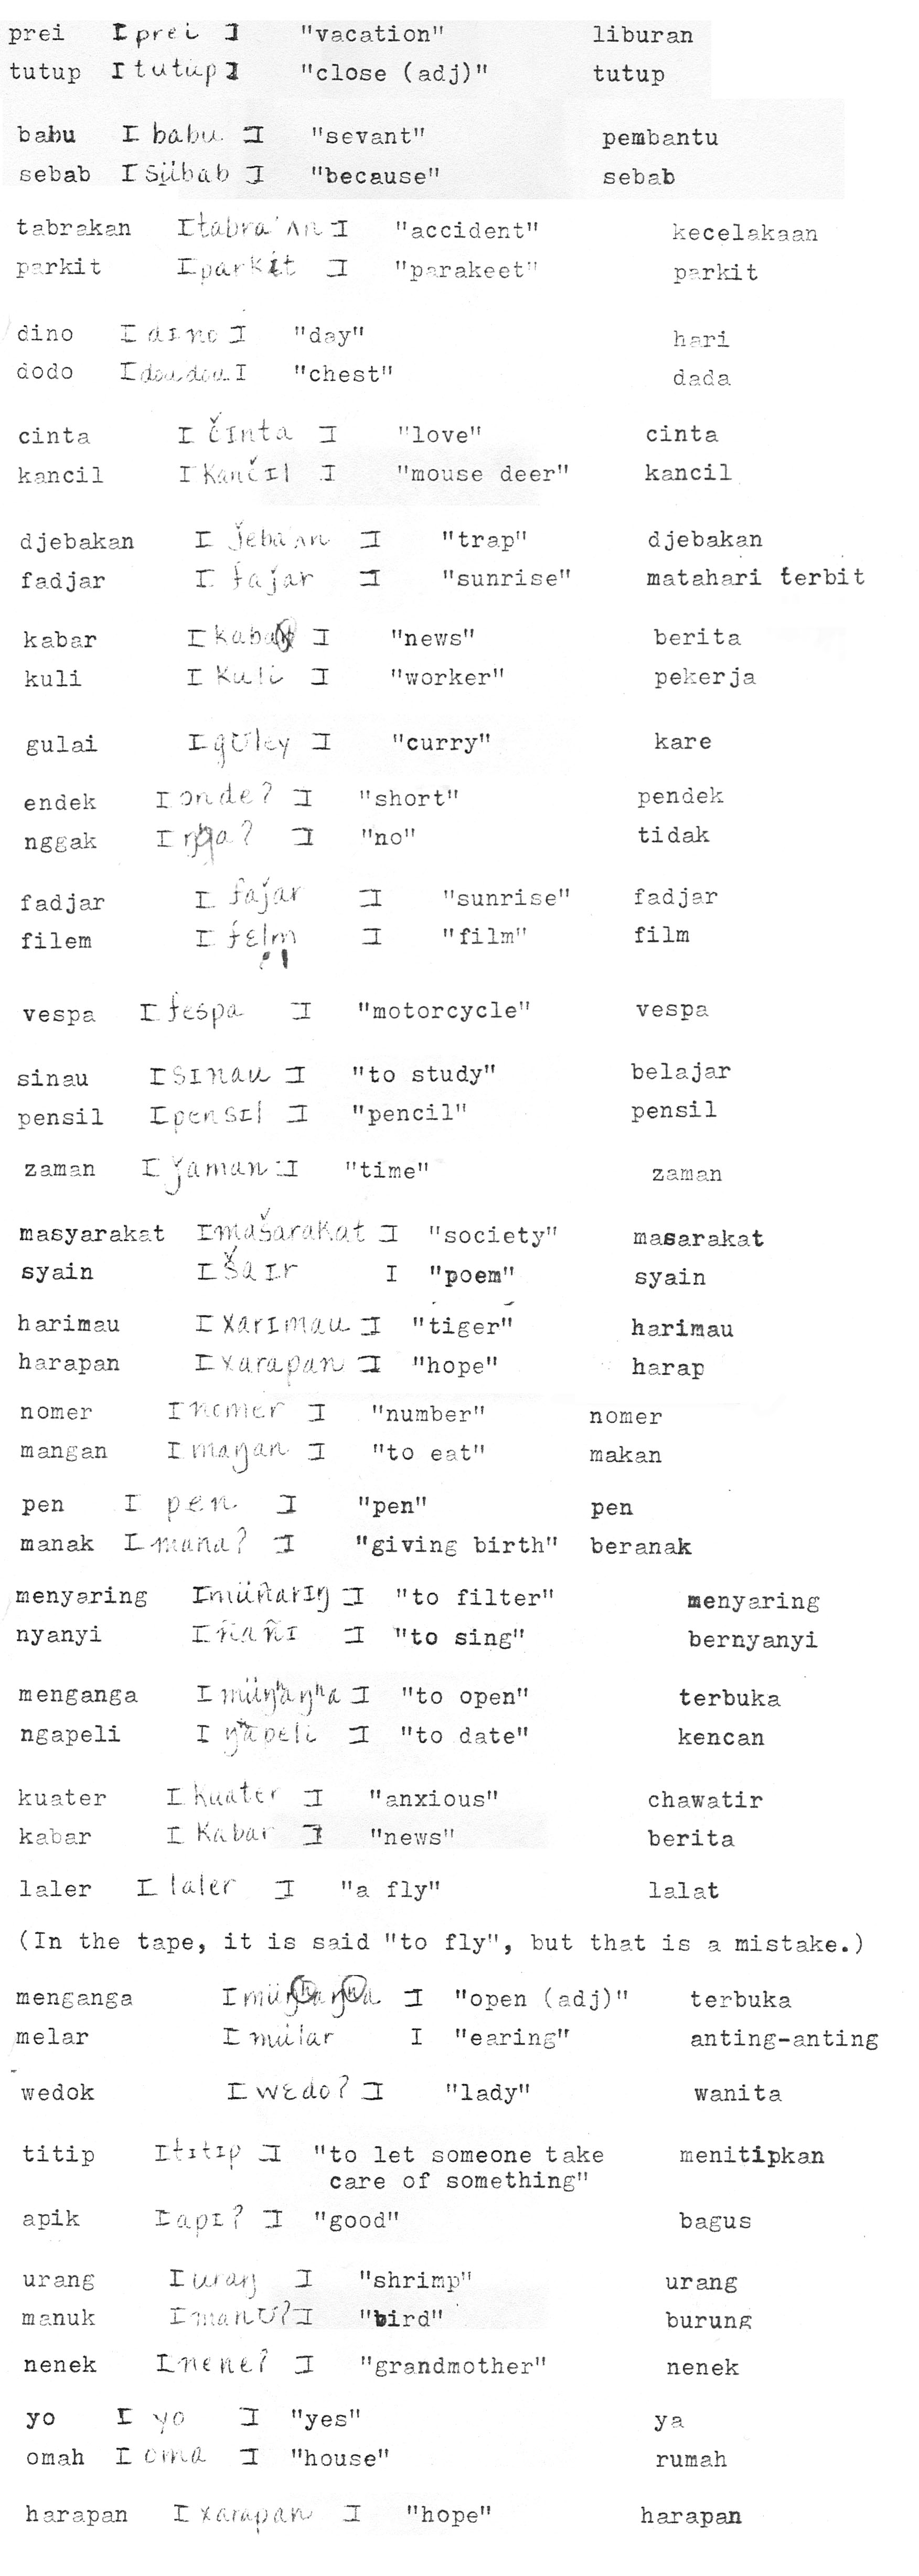 prei [prei] "vacation" liburan
tutup [tutup] "close (adj)" tutup
babu [babu] "sevant" pembantu
sebab [sübab] "because" sebab
tabrakan [tabra'ʌn] "accident" kecelakaan
parkit [parkɪt] "parakeet" parkit
dino [dɪno] "day" hari
dodo [doudou] "chest" dada
cinta [čɪnta] "love" cinta
kancil [kančɪl] "mouse deer" kancil
djebakan [ǰebaʌn] "trap" djebakan
fadjar [faǰar] "sunrise" matahari terbit
kabar "news" berita
kuli [kuli] "worker" pekerja
gulai [gʊley] "curry" kare
endek [ende?] "short" pendek
nggak "no" tidak
fadjar [faǰar] "sunrise" fadjar
filem [fɛlm] "film" film
vespa [fespa] "motorcycle" vespa
sinau [sɪnau] "to study" belajar
pensil [pensɪl] "pencil" pensil
zaman [ǰaman] "time" zaman
masyarakat [mašarakat] "society" masarakat
syain [šaɪr] "poem" syain
harimau [xarɪmau] "tiger" harimau
harapan [xarapan] "hope" harap
nomer [nomer] "number" nomer
mangan [maŋan] "to eat" makan
pen [pen] "pen" pen
manak [mana?] "giving birth" beranak
menyaring [müñarɪŋ] "to filter" menyaring
nyanyi [ñañɪ] "to sing" bernyanyi
menganga [müŋʰaŋʰa] "to open" terbuka
ngapeli [ŋʰapeli] "to date" kencan
kuater [kuater] "anxious" chawatir
kabar [kabar] "news" berita
laler [laler] "a fly" lalat
(In the tape, it is said "to fly", but that is a mistake.)
menganga "open (adj)" terbuka
melar [mülar] "earing" anting-anting
wedok [wɛdo?] "lady" wanita
titip [tɪtɪp] "to let someone take menitipkan
care of something"
apik [apɪ?] "good" bagus
urang [uraŋ] "shrimp" urang
manuk [manʊ?] "bird" burung
nenek [nene?] "grandmother" nenek
yo [yo] "yes" ya
omah [oma] "house" rumah
harapan [xarapan] "hope" harapan